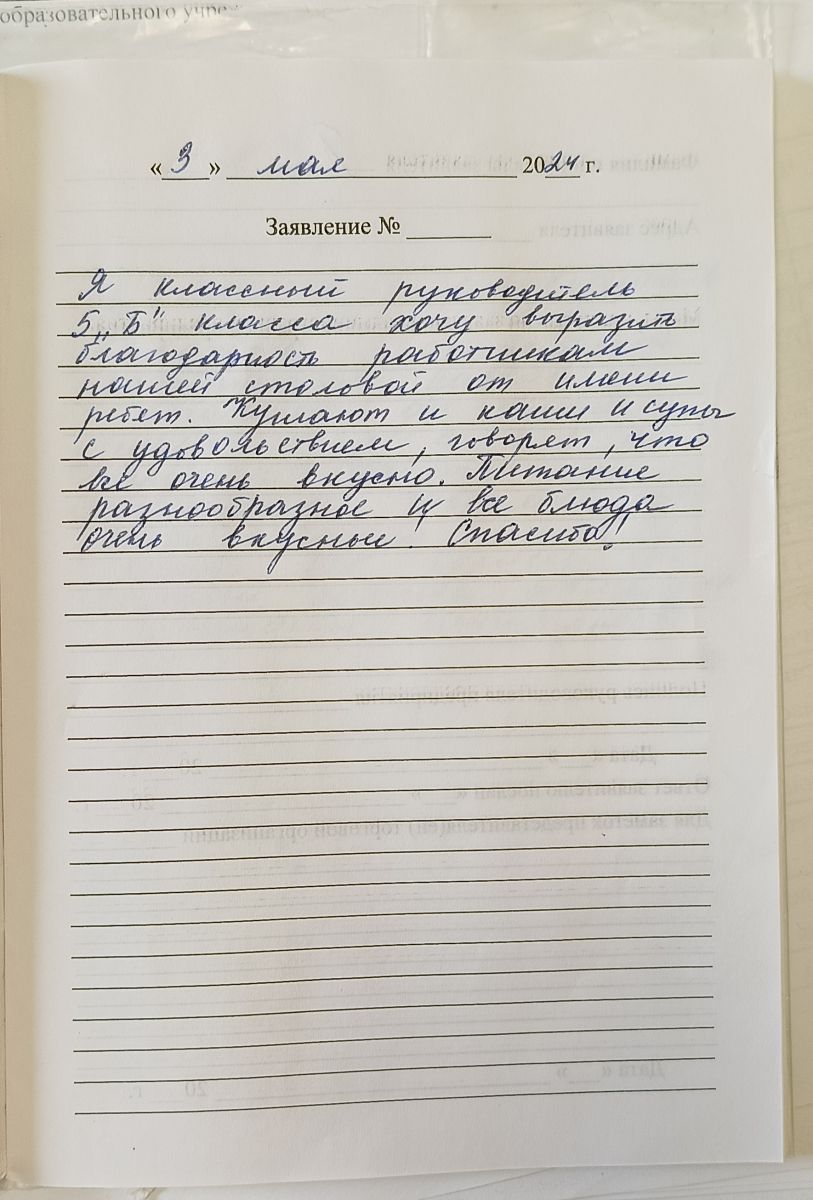 образовательного учре
« 3 » мая 2024 г.
Заявление № ______
Я классный руководитель
5 „Б" класса хочу выразить
благодарность работникам
нашей столовой от имени
ребят. Кушают и каши и супы
с удовольствием, говорят, что
все очень вкусно. Питание
разнообразное и все блюда
очень вкусные! Спасибо!